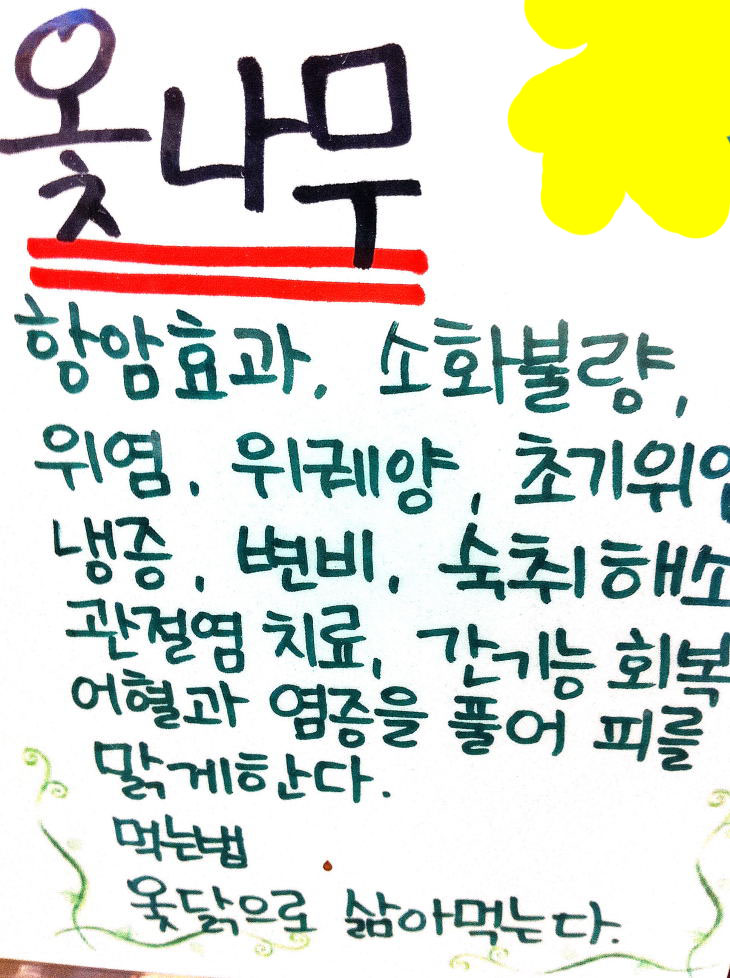 옻나무
항암효과, 소화불량,
위염, 위궤양, 초기위암
냉증, 변비, 숙취해소
관절염 치료, 간기능 회복
어혈과 염증을 풀어 피를
맑게한다.
먹는법
옻닭으로 삶아먹는다.